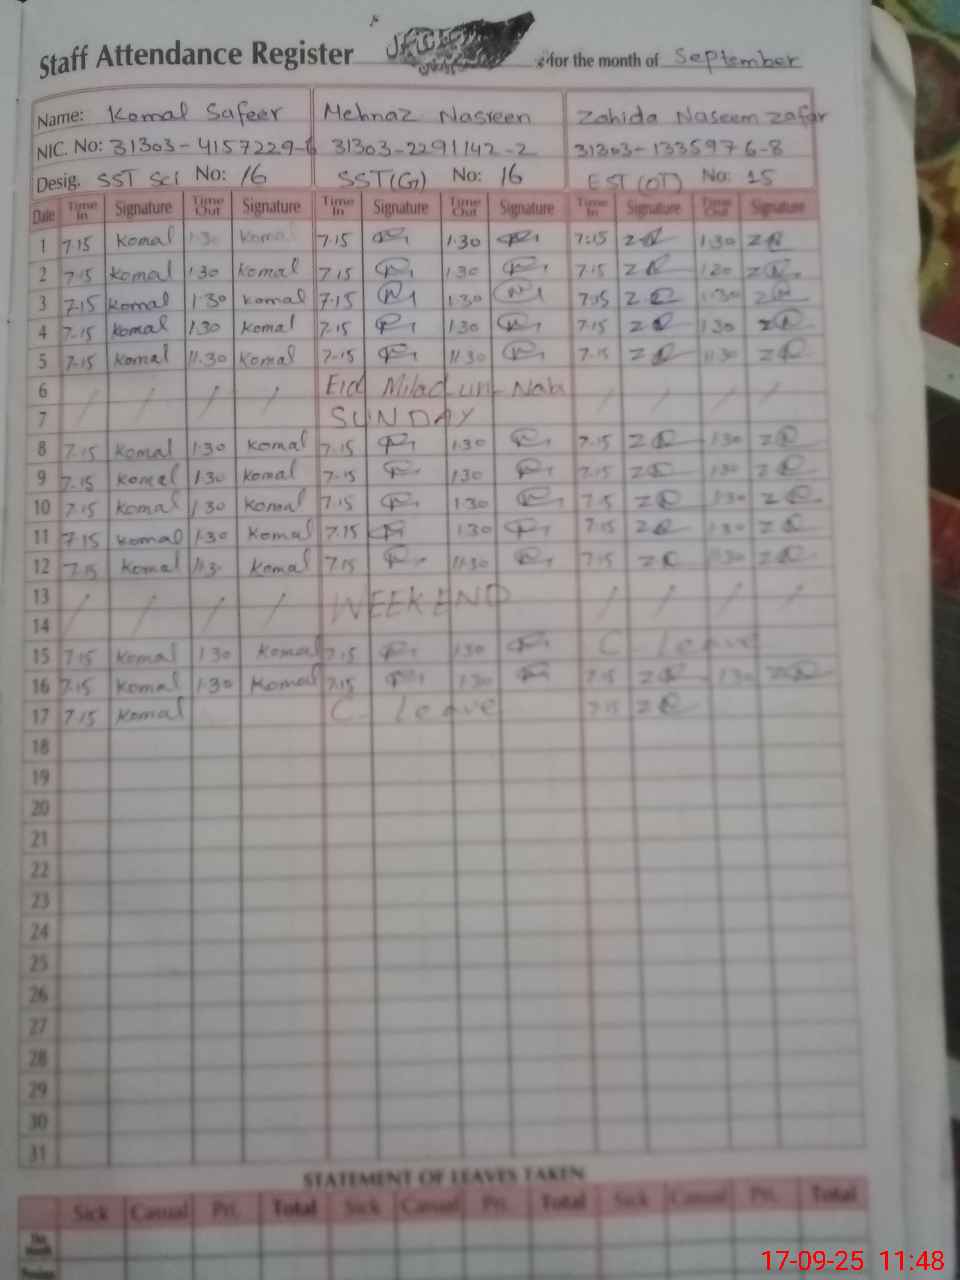 Staff Attendance Register for the month of September
Name: Komal Safeer Mehnaz Nasreen Zahida Naseem Zafar
NIC. No: 31303-4157229-6 31303-2291142-2 31303-1335976-8
Desig. SST Sci No: 16 SST(G) No: 16 EST (OT) No: 15
Date Time In Signature Time Out Signature Time In Signature Time Out Signature Time In Signature Time Out Signature
1 7.15 Komal 1.30 Komal 7.15 1.30 7:15 1.30
2 7.15 Komal 1.30 Komal 7.15 1.30 7.15 1.30
3 7.15 Komal 1.30 Komal 7.15 1.30 7.15 1.30
4 7.15 Komal 1.30 Komal 7.15 1.30 7.15 1.30
5 7.15 Komal 11.30 Komal 7.15 11.30 7.15 11.30
6 / / / / Eid Milad un Nabi / / / /
7 SUNDAY
8 7.15 Komal 1.30 Komal 7.15 1.30 7.15 1.30
9 7.15 Komal 1.30 Komal 7.15 1.30 7.15 1.30
10 7.15 Komal 1.30 Komal 7.15 1.30 7.5 1.30
11 7.15 Komal 1.30 Komal 7.15 1.30 7.15 1.30
12 7.15 Komal 11.3 Komal 7.15 11.30 7.15 11.30
13 / / / / WEEKEND / / / /
14
15 7.15 Komal 1.30 Komal 7.15 1.30 C. leave
16 7.15 Komal 1.30 Komal 7.15 1.30 7.15 1.30
17 7.15 Komal C. leave 7.15
18
19
20
21
22
23
24
25
26
27
28
29
30
31
STATEMENT OF LEAVES TAKEN
Sick Casual Pri. Total Sick Casual Pri. Total Sick Casual Pri. Total
This Month
Previous
17-09-25 11:48